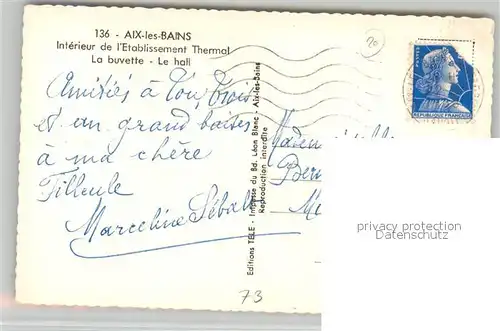 136 - AIX-les-BAINS
Intérieur de l'Etablissement Thermal
La buvette - Le hall
20
Amitiés à tous trois
et un grand baiser
à ma chère
Filleule
Marceline
Editions TELE - Impasse du Bd. Léon Blanc - Aix-les-Bains
Reproduction interdite
POSTES
REPUBLIQUE FRANÇAISE
73
privacy protection
Datenschutz